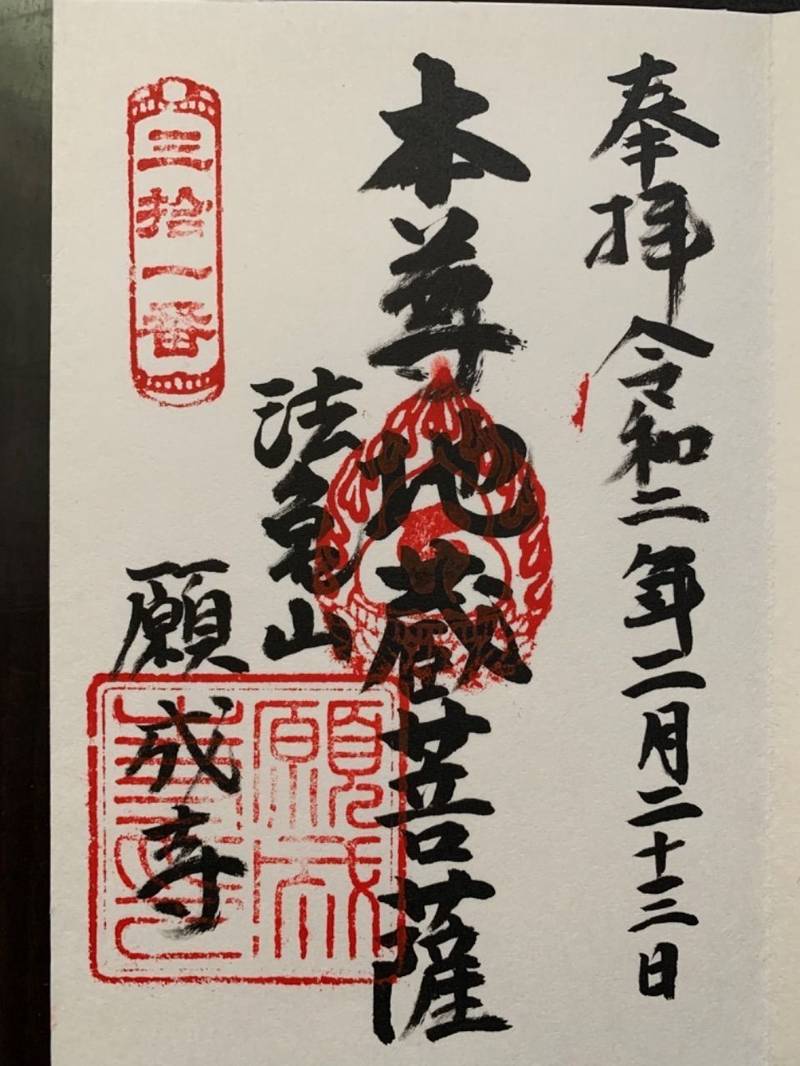 奉拝 令和二年二月二十三日
本尊 地蔵菩薩
法亀山
願成寺
三拾一番
願成